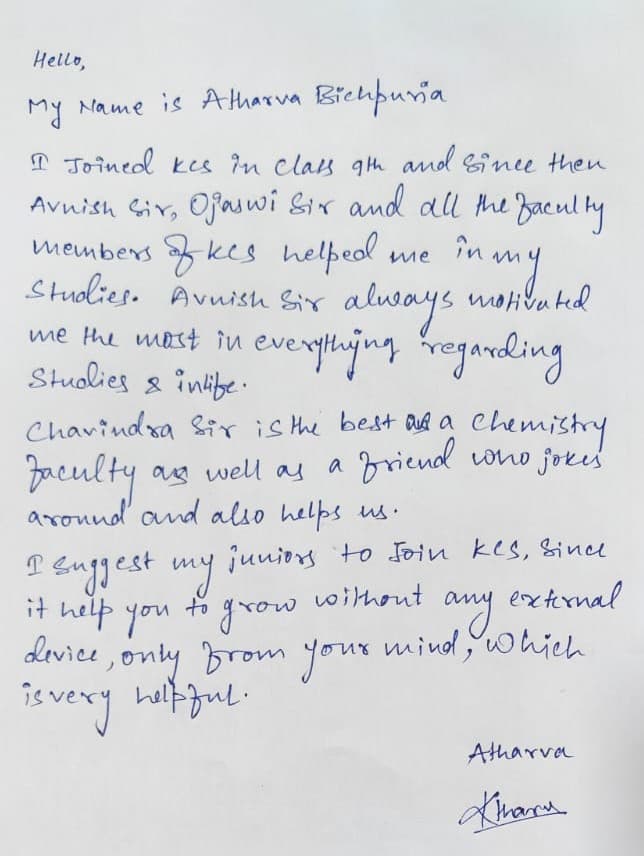 Hello,
My Name is Atharva Bichpuria
I Joined kcs in class 9th and since then
Avnish Sir, Ojaswi Sir and all the faculty
members of kcs helped me in my
Studies. Avnish Sir always motivated
me the most in everythying regarding
Studies & inlife.
Chavindra Sir is the best as a Chemistry
faculty as well as a friend who jokes
around and also helps us.
I suggest my juniors to Join kcs, Since
it help you to grow without any external
device, only from your mind, which
is very helpful.
Atharva
Atharv